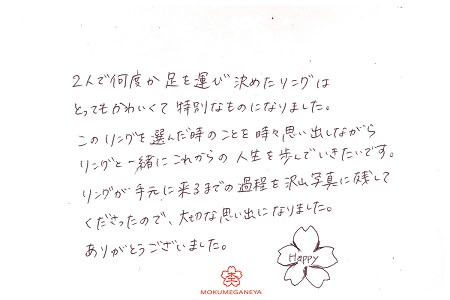 2人で何度か足を運び決めたリングは
とってもかわいくて特別なものになりました。
このリングを選んだ時のことを時々思い出しながら
リングと一緒にこれからの人生を歩んでいきたいです。
リングが手元に来るまでの過程を沢山写真に残して
くださったので、大切な思い出になりました。
ありがとうございました。
Happy
MOKUMEGANEYA